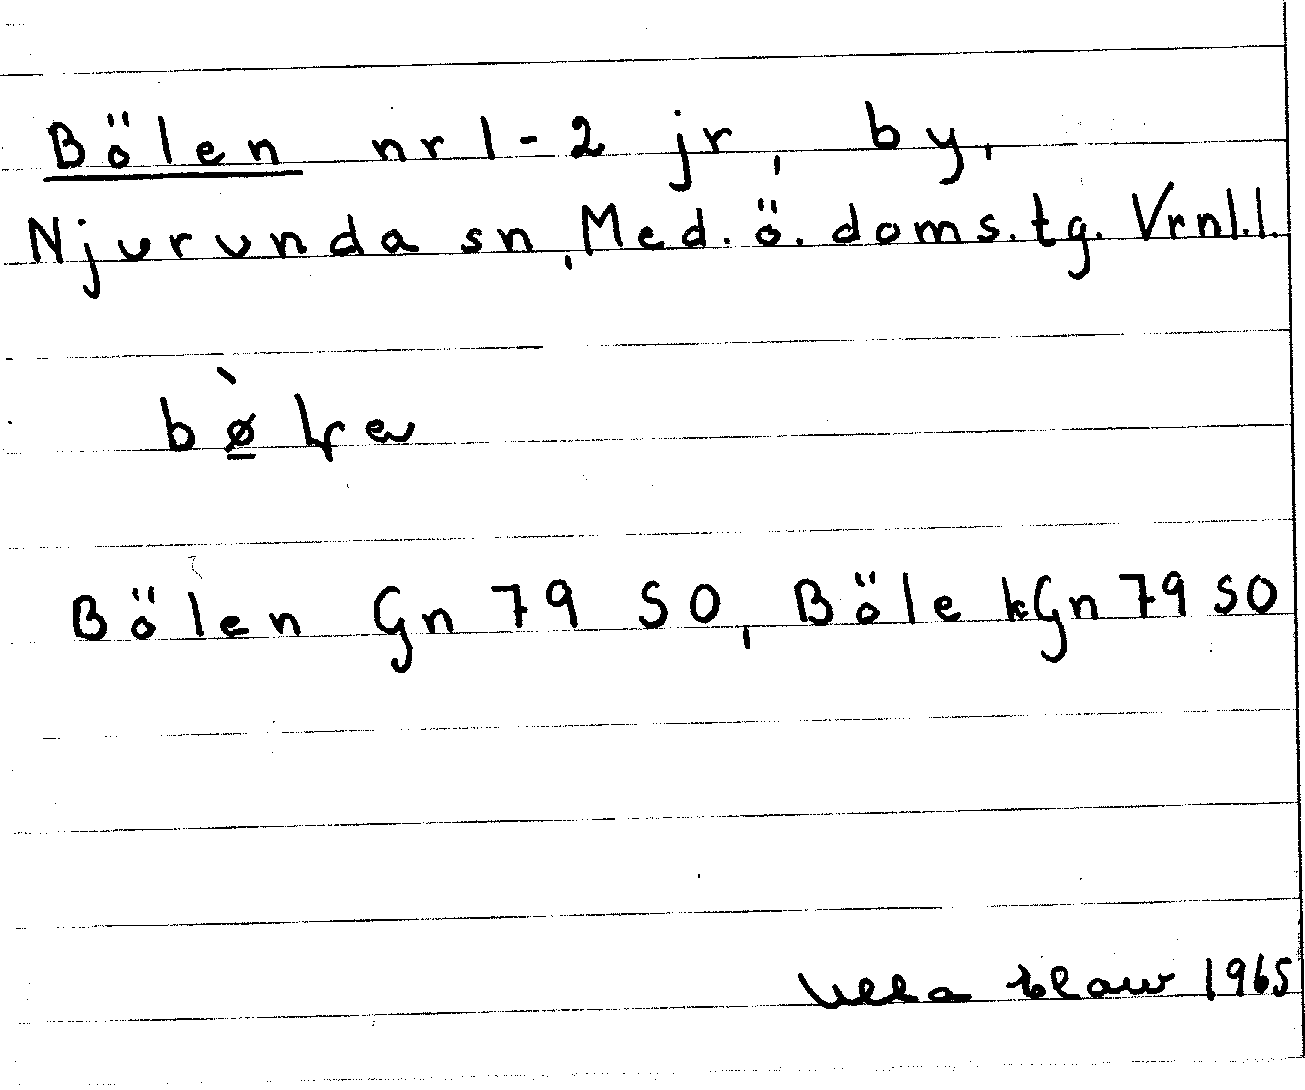 Bölen nr 1-2 jr, by,
Njurunda sn, Med. ö. doms.tg. Vrnl.l.
Bölen Gn 79 SO, Böle kGn 79 SO
Ulla 1965